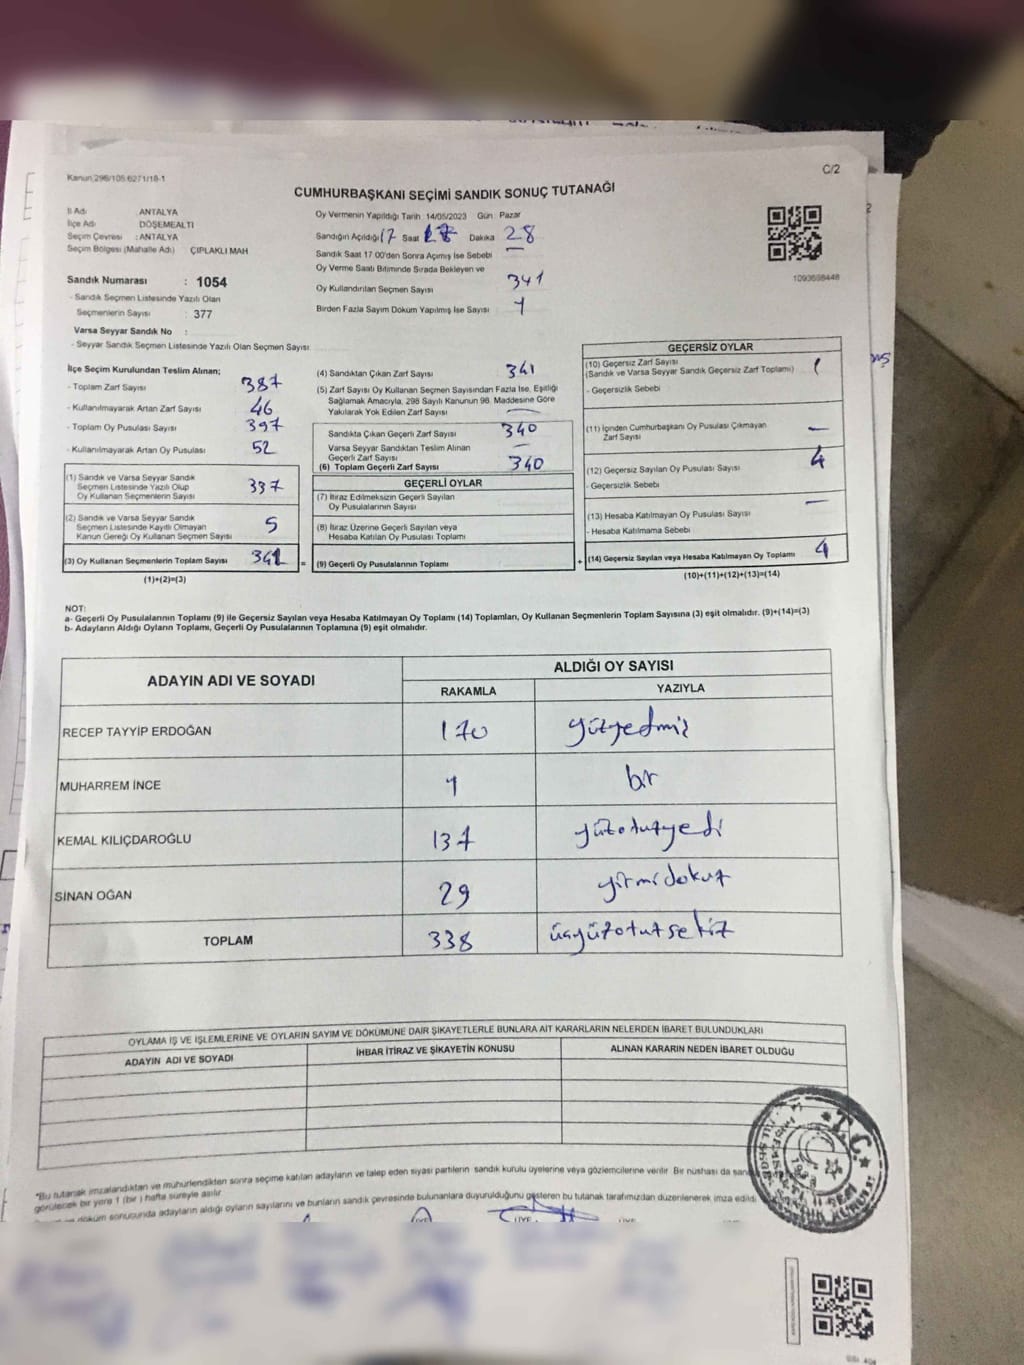 C/2
Kanun 298/105.6271/18-1
CUMHURBAŞKANI SEÇİMİ SANDIK SONUÇ TUTANAĞI
İl Adı : ANTALYA
İlçe Adı : DÖŞEMEALTI
Seçim Çevresi : ANTALYA
Seçim Bölgesi (Mahalle Adı) ÇIPLAKLI MAH
Sandık Numarası : 1054
- Sandık Seçmen Listesinde Yazılı Olan
Seçmenlerin Sayısı : 377
Varsa Seyyar Sandık No :
- Seyyar Sandık Seçmen Listesinde Yazılı Olan Seçmen Sayısı:
Oy Vermenin Yapıldığı Tarih 14/05/2023 Gün Pazar
Sandığın Açıldığı 17 Saat Dakika 28
Sandık Saat 17.00'den Sonra Açımış İse Sebebi
Oy Verme Saati Bitiminde Sırada Bekleyen ve
Oy Kullandırılan Seçmen Sayısı 341
Birden Fazla Sayım Döküm Yapılmış İse Sayısı 1
1093698448
İlçe Seçim Kurulundan Teslim Alınan;
- Toplam Zarf Sayısı 387
- Kullanılmayarak Artan Zarf Sayısı 46
- Toplam Oy Pusulası Sayısı 397
- Kullanılmayarak Artan Oy Pusulası 52
(1) Sandık ve Varsa Seyyar Sandık
Seçmen Listesinde Yazılı Olup
Oy Kullanan Seçmenlerin Sayısı 337
(2) Sandık ve Varsa Seyyar Sandık
Seçmen Listesinde Kayıtlı Olmayan
Kanun Gereği Oy Kullanan Seçmen Sayısı 5
(3) Oy Kullanan Seçmenlerin Toplam Sayısı =
(1)+(2)=(3)
(4) Sandıktan Çıkan Zarf Sayısı 341
(5) Zarf Sayısı Oy Kullanan Seçmen Sayısından Fazla İse, Eşitliği
Sağlamak Amacıyla, 298 Sayılı Kanunun 98. Maddesine Göre
Yakılarak Yok Edilen Zarf Sayısı —
Sandıkta Çıkan Geçerli Zarf Sayısı 340
Varsa Seyyar Sandıktan Teslim Alınan
Geçerli Zarf Sayısı —
(6) Toplam Geçerli Zarf Sayısı 340
GEÇERLİ OYLAR
(7) İtiraz Edilmeksizin Geçerli Sayılan
Oy Pusulalarının Sayısı
(8) İtiraz Üzerine Geçerli Sayılan veya
Hesaba Katılan Oy Pusulası Toplamı
(9) Geçerli Oy Pusulalarının Toplamı +
GEÇERSİZ OYLAR
(10) Geçersiz Zarf Sayısı
(Sandık ve Varsa Seyyar Sandık Geçersiz Zarf Toplamı) 1
- Geçersizlik Sebebi
(11) İçinden Cumhurbaşkanı Oy Pusulası Çıkmayan
Zarf Sayısı —
(12) Geçersiz Sayılan Oy Pusulası Sayısı 4
- Geçersizlik Sebebi
(13) Hesaba Katılmayan Oy Pusulası Sayısı —
- Hesaba Katılmama Sebebi
(14) Geçersiz Sayılan veya Hesaba Katılmayan Oy Toplamı 4
(10)+(11)+(12)+(13)=(14)
NOT:
a- Geçerli Oy Pusulalarının Toplamı (9) ile Geçersiz Sayılan veya Hesaba Katılmayan Oy Toplamı (14) Toplamları, Oy Kullanan Seçmenlerin Toplam Sayısına (3) eşit olmalıdır. (9)+(14)=(3)
b- Adayların Aldığı Oyların Toplamı, Geçerli Oy Pusulalarının Toplamına (9) eşit olmalıdır.
ADAYIN ADI VE SOYADI ALDIĞI OY SAYISI
RAKAMLA YAZIYLA
RECEP TAYYİP ERDOĞAN 170 yüzyedmiz
MUHARREM İNCE 1 bir
KEMAL KILIÇDAROĞLU 137 yüzotuzyedi
SİNAN OĞAN 29 yirmidokuz
TOPLAM 338 üçyüzotuzsekiz
OYLAMA İŞ VE İŞLEMLERİNE VE OYLARIN SAYIM VE DÖKÜMÜNE DAİR ŞİKAYETLERLE BUNLARA AİT KARARLARIN NELERDEN İBARET BULUNDUKLARI
ADAYIN ADI VE SOYADI İHBAR İTİRAZ VE ŞİKAYETİN KONUSU ALINAN KARARIN NEDEN İBARET OLDUĞU
"Bu tutanak imzalandıktan ve mühürlendikten sonra seçime katılan adayların ve talep eden siyasi partilerin sandık kurulu üyelerine veya gözlemcilerine verilir. Bir nüshası da
görülecek bir yere 1 (bir) hafta süreyle asılır.
döküm sonucunda adayların aldığı oyların sayılarını ve bunların sandık çevresinde bulunanlara duyurulduğunu gösteren bu tutanak tarafımızdan düzenlenerek imza edildi
ÜYE
T.C.